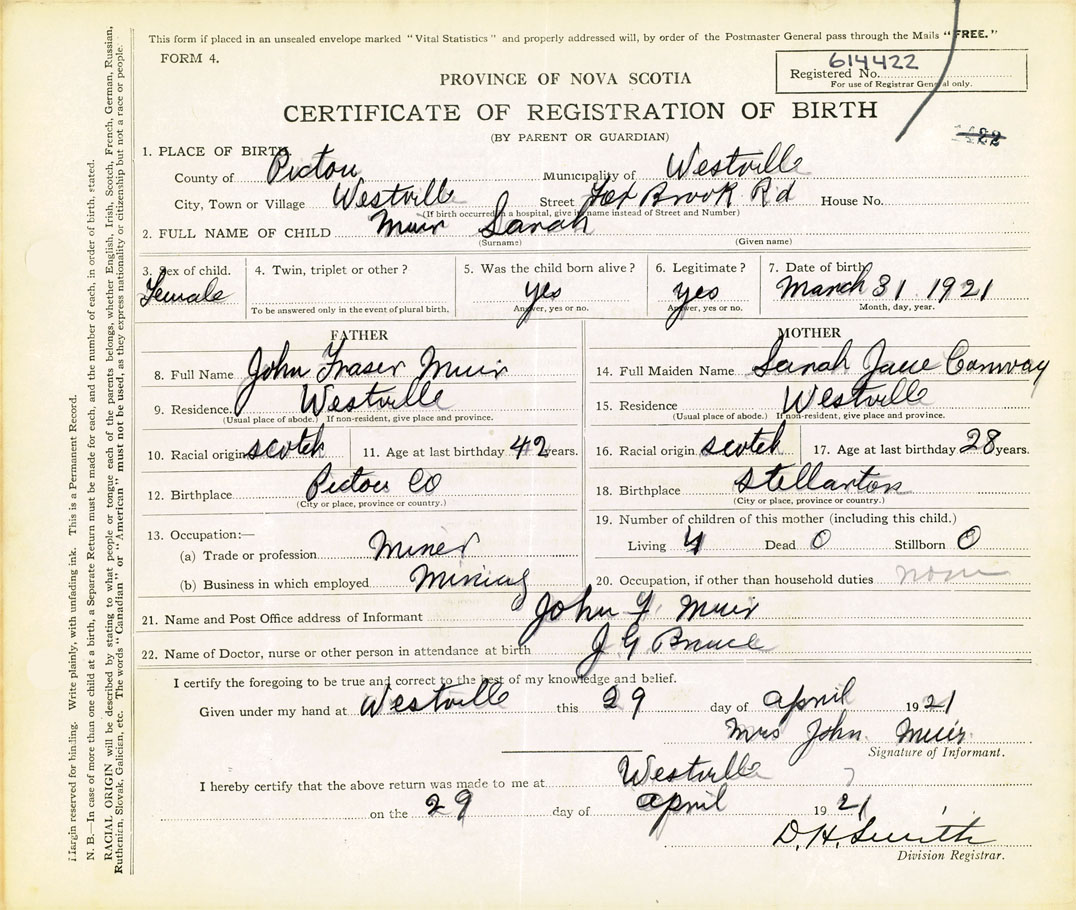 This form if placed in an unsealed envelope marked "Vital Statistics" and properly addressed will, by order of the Postmaster General pass through the Mails "FREE."
FORM 4.
614422
Registered No.
For use of Registrar General only.
PROVINCE OF NOVA SCOTIA
CERTIFICATE OF REGISTRATION OF BIRTH
(BY PARENT OR GUARDIAN)
1. PLACE OF BIRTH
County of Pictou Municipality of Westville
City, Town or Village Westville Street Fox Brook Rd House No.
(If birth occurred in a hospital, give its name instead of Street and Number)
2. FULL NAME OF CHILD Muir Sarah
(Surname) (Given name)
3. Sex of child. 4. Twin, triplet or other? 5. Was the child born alive? 6. Legitimate? 7. Date of birth
Female yes yes March 31 1921
To be answered only in the event of plural birth. Answer, yes or no. Answer, yes or no. Month, day, year.
FATHER MOTHER
8. Full Name John Fraser Muir 14. Full Maiden Name Sarah Jane Conway
9. Residence Westville 15. Residence Westville
(Usual place of abode.) If non-resident, give place and province. (Usual place of abode.) If non-resident, give place and province.
10. Racial origin scotch 11. Age at last birthday 42 years. 16. Racial origin scotch 17. Age at last birthday 28 years.
12. Birthplace Pictou Co 18. Birthplace Stellarton
(City or place, province or country.) (City or place, province or country.)
13. Occupation:— 19. Number of children of this mother (including this child.)
(a) Trade or profession Miner Living 4 Dead 0 Stillborn 0
(b) Business in which employed Mining 20. Occupation, if other than household duties none
21. Name and Post Office address of Informant John F. Muir
22. Name of Doctor, nurse or other person in attendance at birth J G
I certify the foregoing to be true and correct to the best of my knowledge and belief.
Given under my hand at Westville this 29 day of april 1921
Mrs John Muir
Signature of Informant.
I hereby certify that the above return was made to me at Westville
on the 29 day of april 1921
D. H. Smith
Division Registrar.
Margin reserved for binding. Write plainly, with unfading ink. This is a Permanent Record.
N. B.—In case of more than one child at a birth, a Separate Return must be made for each, and the number of each, in order of birth, stated.
RACIAL ORIGIN will be described by stating to what people or tongue each of the parents belongs, whether English, Irish, Scotch, French, German, Russian,
Ruthenian, Slovak, Galician, etc. The words "Canadian" or "American" must not be used, as they express nationality or citizenship but not a race or people.